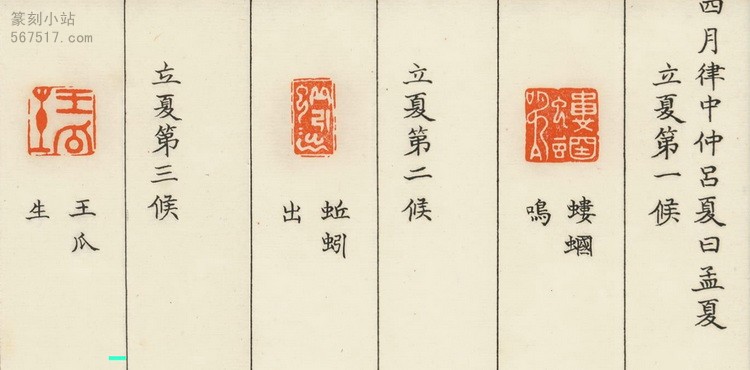 四月律中仲呂夏日孟夏
立夏第一候
螻蟈
鳴
立夏第二候
蚯蚓
出
立夏第三候
王瓜
生
篆刻小站
567517.com